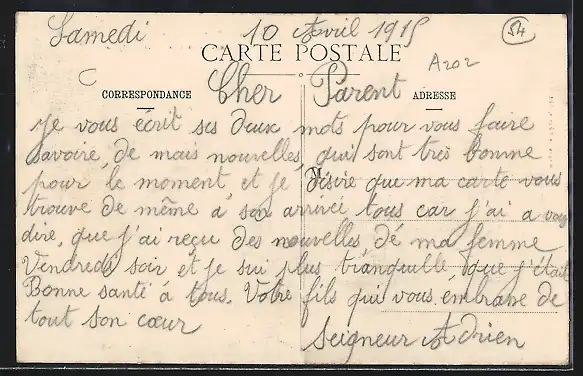 Samedi 10 Avril 1915 54
CARTE POSTALE
A202
CORRESPONDANCE Cher Parent ADRESSE
Je vous écrit ses deux mots pour vous faire
savoire, de mais nouvelles, qui sont très bonne
pour le moment, et je désire que ma carte vous
trouve de même à son arrivéi tous car j'ai a vous
dire, que j'ai reçu des nouvelles dé ma femme
Vendredi soir et je sui plus tranquille que j'était
Bonne santé á tous. Votre fils qui vous embrase de
tout son cœur
Seigneur Adrien